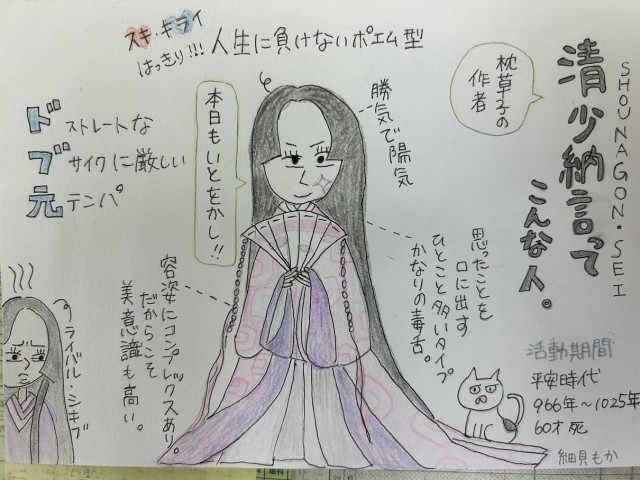 スキ・キライ
はっきり!!! 人生に負けないポエム型
SHOUNAGON・SEI
清少納言って
こんな人。
枕草子の
作者
勝気で陽気
本日もいとをかし!!
ドストレートな
ブサイクに厳しい
元テンパ
思ったことを
口に出す
ひとこと多いタイプ
かなりの毒舌。
容姿にコンプレックスあり。
だからこそ
美意識も高い。
ライバル・シキブ
活動期間
平安時代
966年~1025年
60才死
細貝もか